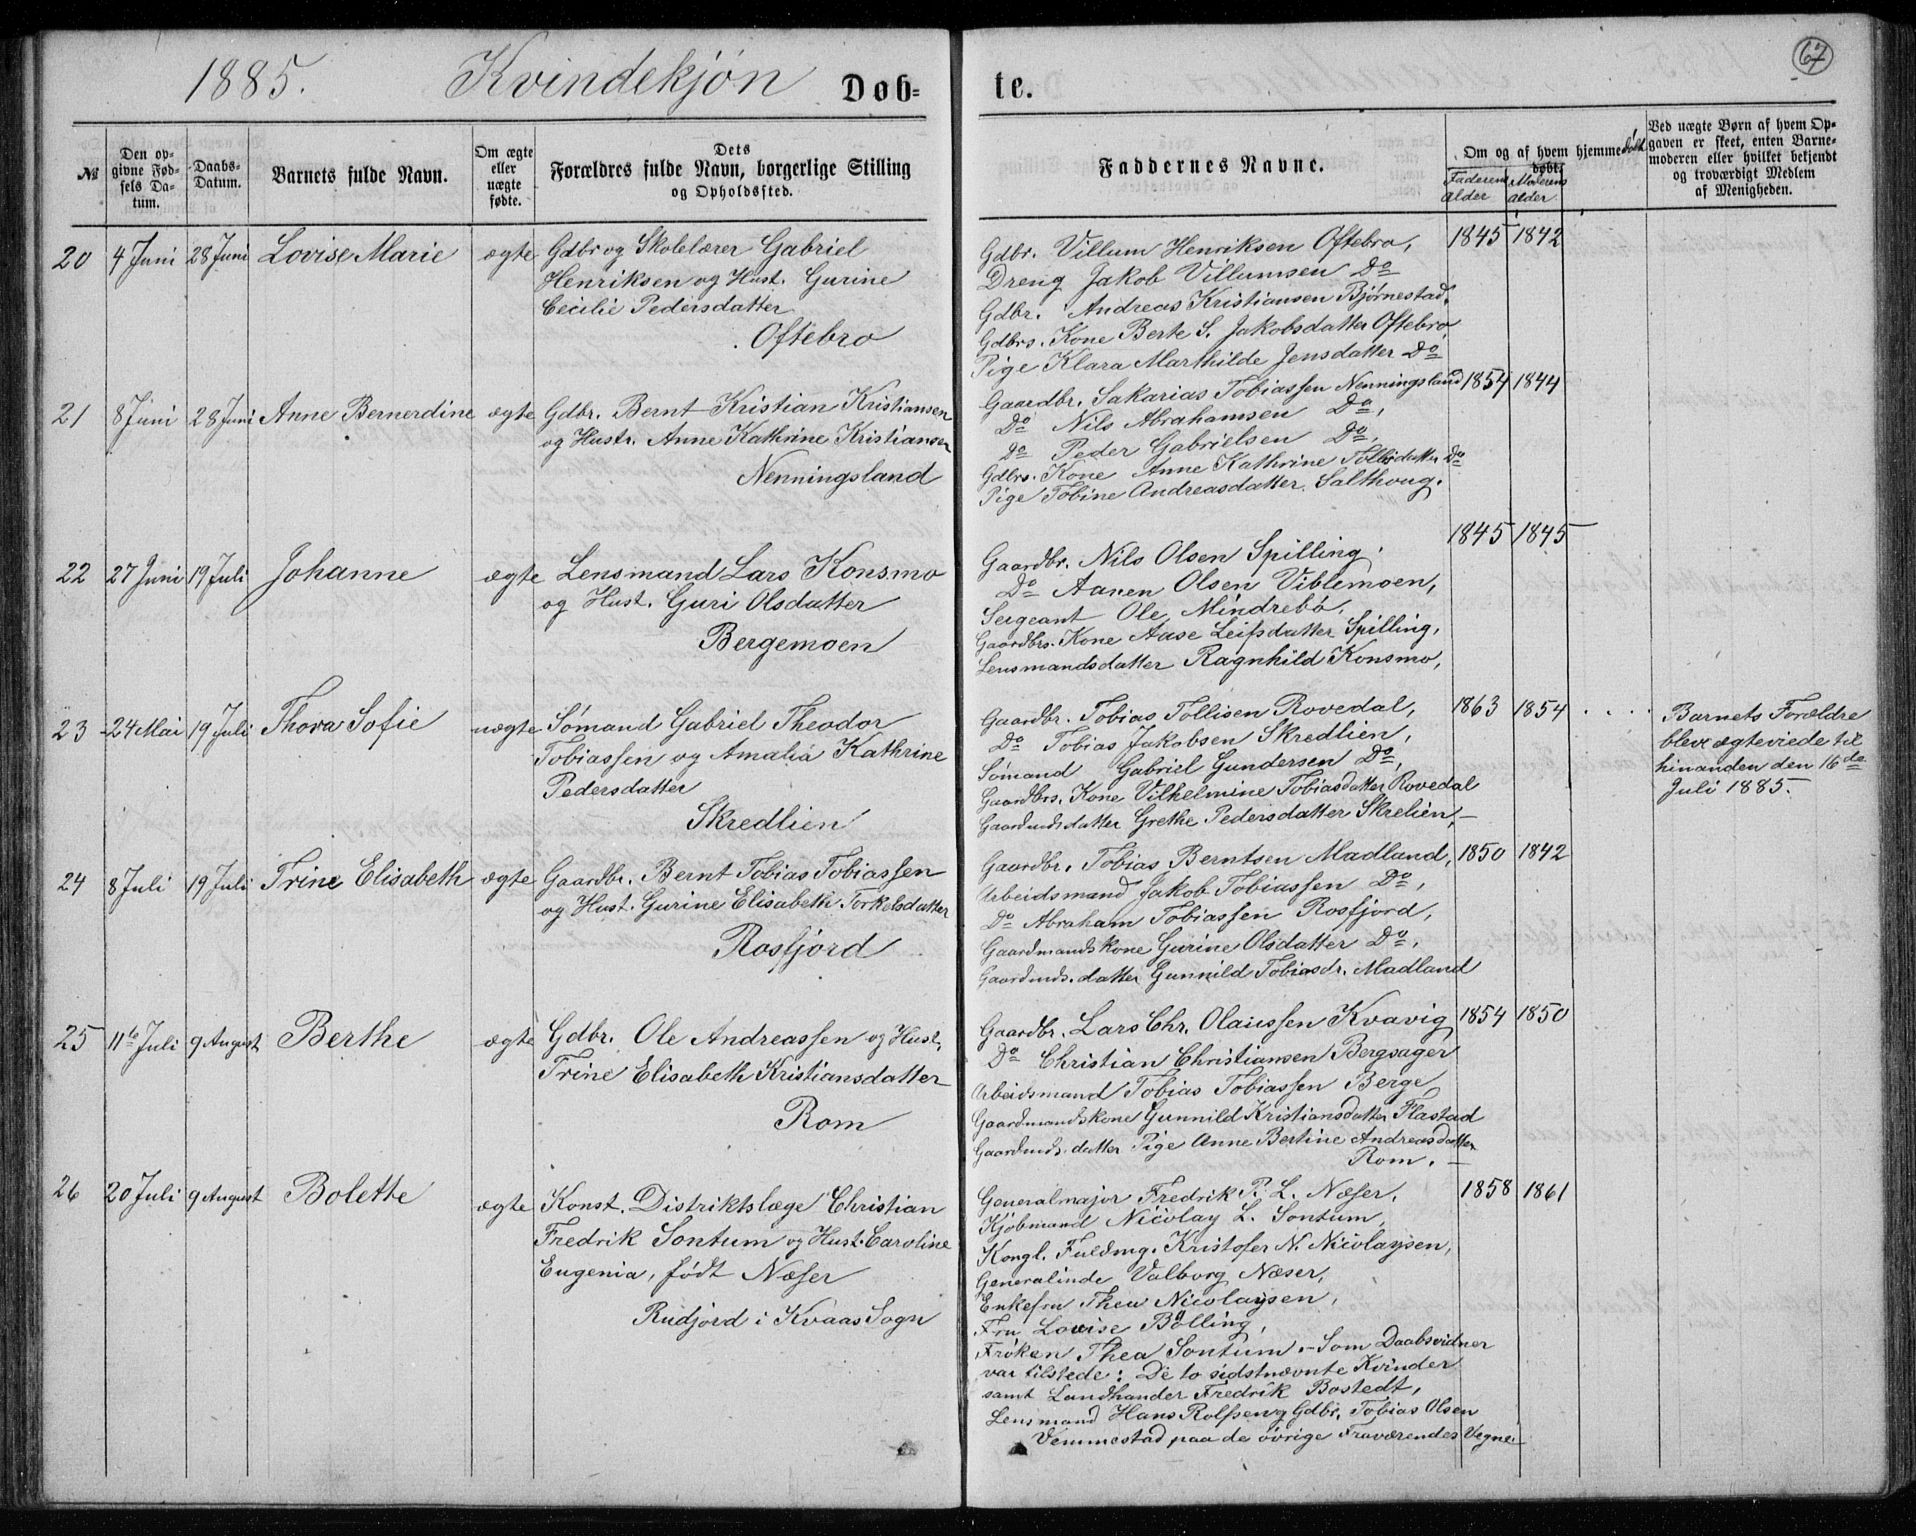 67
1885. Kvindekjøn Døb- te.
№
Den opgivne Fødsels Datum.
Daabs-Datum.
Barnets fulde Navn.
Om ægte eller uægte fødte.
Dets Forældres fulde Navn, borgerlige Stilling og Opholdssted.
Faddernes Navne.
Om og af hvem hjemmedøbt
Faderens Alder
Moderens Alder
Ved uægte Børn af hvem Opgaven er skeet, enten Barnemoderen eller hvilket bekjendt og troværdigt Medlem af Menigheden.
20 4 Juni 28 Juni Lovise Marie ægte Gdbr og Skolelærer Gabriel
Henriksen og Hust. Gurine
Cecilie Pedersdatter
Oftebro
Gdbr. Villum Henriksen Oftebro, 1845 1842
Dreng Jakob Villumsen Do
Gdbr. Andreas Kristiansen Bjørnestad.
Gdbrs. Kone Berte S. Jakobsdatter Oftebro
Pige Klara Marthilde Jensdatter Do
21 8 Juni 28 Juni Anne Bernerdine ægte Gdbr. Bernt Kristian Kristiansen
og Hustr. Anne Kathrine Kristiansen
Nenningsland
Gaardbr. Sakarias Tobiassen Nenningsland 1854 1844
Do Nils Abrahamsen Do,
Do Peder Gabrielsen Do,
Gdbrs. Kone Anne Kathrine Tollisdatter Do
Pige Tobine Andreasdatter Salthoug.
22 27 Juni 19 Juli Johanne ægte Lensmand Lars Konsmo
og Hust. Guri Olsdatter
Bergemoen
1845 1845
Gaardbr. Nils Olsen Spilling.
Do Aanen Olsen Viblemoen,
Sergeant Ole Mindrebø,
Gaardbrs. Kone Aase Leifsdatter Spilling,
Lensmandsdatter Ragnhild Konsmo,
23 24 Mai 19 Juli Thora Sofie uægte Sømand Gabriel Theodor
Tobiassen og Amalia Kathrine
Pedersdatter
Skredlien
Gaardbr. Tobias Tollisen Rovedal, 1863 1854
Do Tobias Jakobsen Skredlien,
Sømand Gabriel Gundersen Do,
Gaardbrs. Kone Vilhelmine Tobiasdatter Rovedal
Gaardmdsdatter Grethe Pedersdatter Skrelien,
Barnets Forældre
bleve ægteviede til
hinanden den 16de
Juli 1885.
24 8 Juli 19 Juli Trine Elisabeth ægte Gaardbr. Bernt Tobias Tobiassen
og Hust. Gurine Elisabeth Torkelsdatter
Rosfjord
Gaardbr. Tobias Berntsen Madland, 1850 1842
Arbeidsmand Jakob Tobiassen Do,
Do Abraham Tobiassen Rosfjord,
Gaardmandskone Gurine Olsdatter Do,
Gaardmds. datter Gunnild Tobiasdr. Madland
25 11te Juli 9 August Berthe ægte Gdbr. Ole Andreassen og Hust.
Trine Elisabeth Kristiansdatter
Rom
Gaardbr. Lars Chr. Olaussen Kvavig 1854 1850
Do Christian Christiansen Bergsager
Arbeidsmand Tobias Tobiassen Berge
Gaardmandskone Gunnild Kristiansdatter Flastad
Gaardmds. datter Pige Anne Bertine Andreasdatter
Rom.
26 20 Juli 9 August Bolette ægte Konst. Distriktslæge Christian
Fredrik Sontum og Hust. Caroline
Eugenia, født Næser
Rudjord i Kvaas Sogn
Generalmajor Fredrik P. L. Næser, 1858 1861
Kjøbmand Nicolay L. Sontum,
Kongl. Fuldmg. Kristofer N. Nicolaysen,
Generalinde Valborg Næser,
Enkefru Thea Nicolaysen,
Fru Lovise Bølling,
Frøken Thea Sontum. – Som Daabsvidner
var tilstede: De to sidstnævnte Kvinder
samt Landhandler Fredrik Bostedt,
Lensmand Hans Rolfsen og Gdbr. Tobias Olsen
Vemmestad paa de øvrige Fraværendes Vegne.